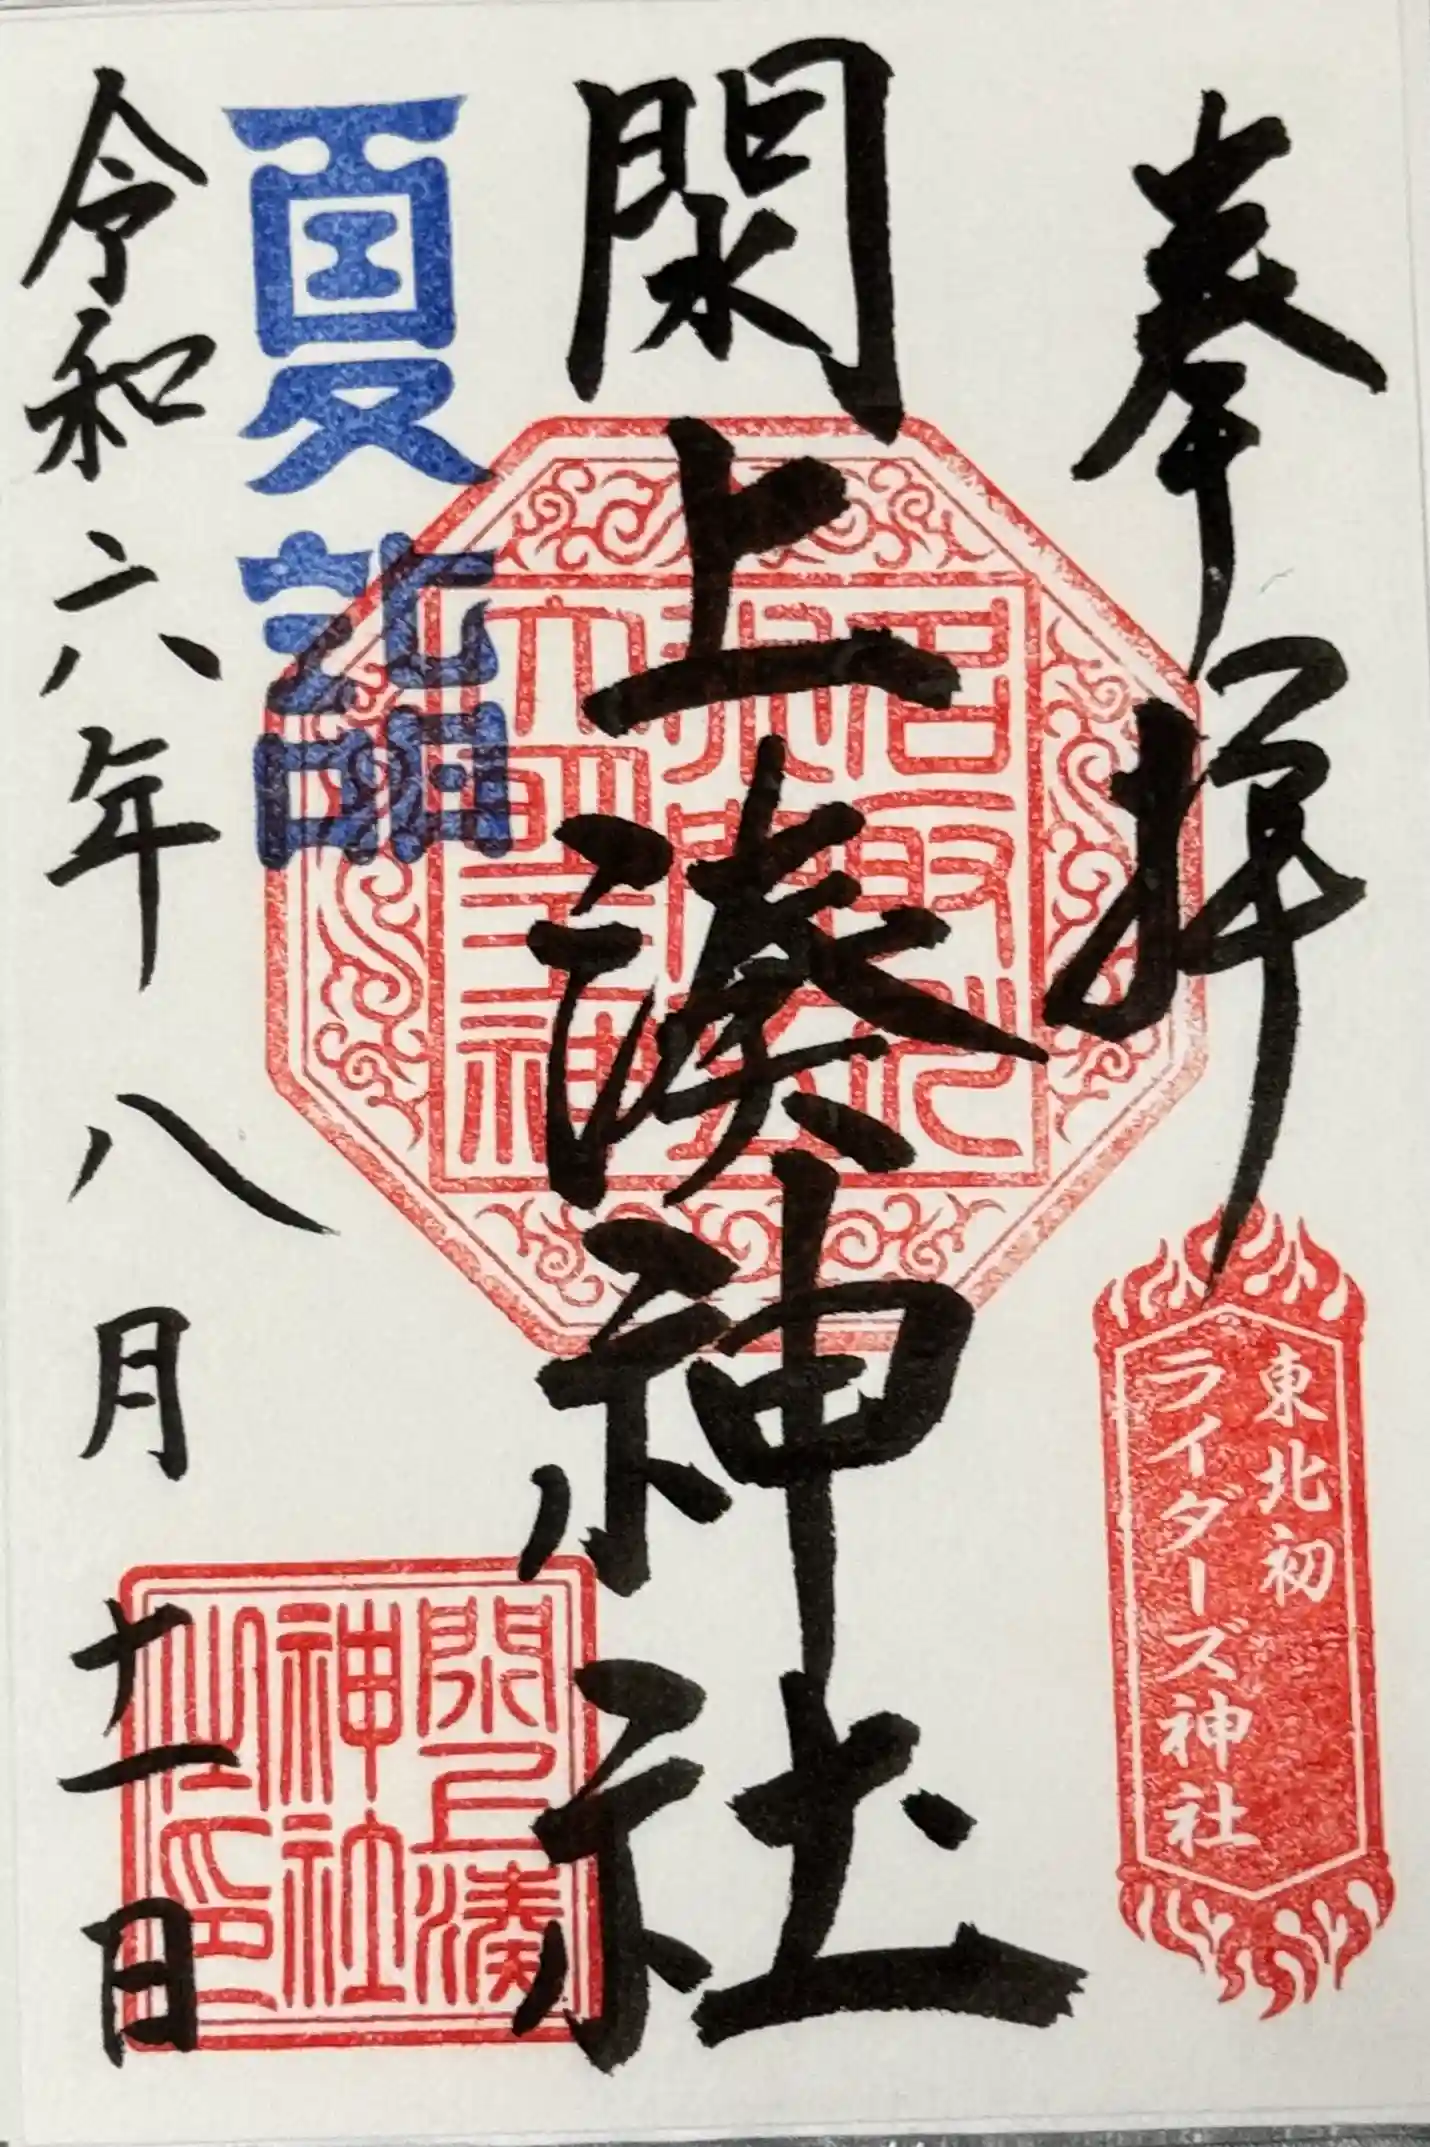 奉拝
東北初
ライダーズ神社
閖上湊神社
閖上湊
神社
之印
夏詣
令和六年八月十一日